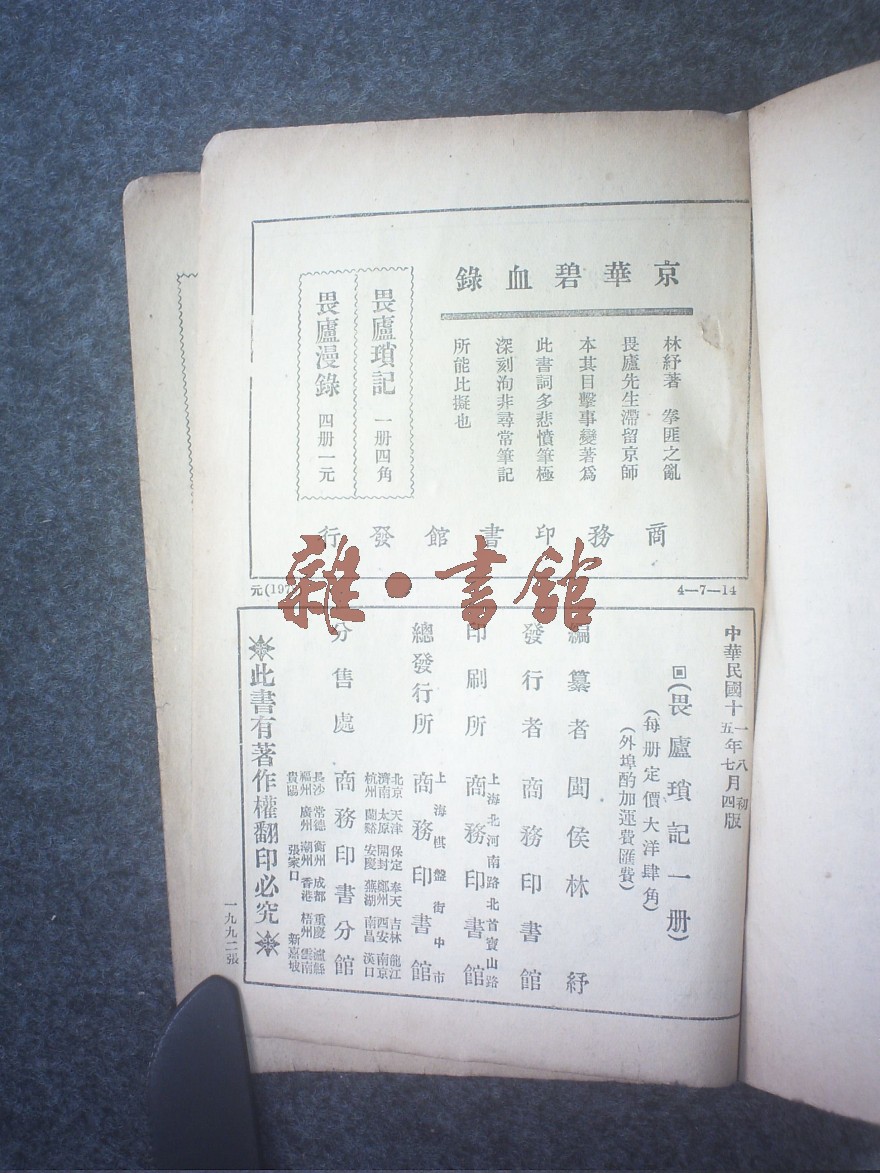 京華碧血錄
林紓著 拳匪之亂
畏廬先生滯留京師
本其目擊事變著爲
此書詞多悲憤筆極
深刻洵非尋常筆記
所能比擬也
畏廬瑣記 一册四角
畏廬漫錄 四册一元
商務印書館發行
4—7—14
元(197
雜·書館
中華民國十一年八月初版
五 七 四
回(畏廬瑣記一册)
(每册定價大洋肆角)
(外埠酌加運費匯費)
編纂者 閩侯林紓
發行者 商務印書館
印刷所 上海北河南路北首寶山路 商務印書館
總發行所 上海棋盤街中市 商務印書館
分售處 商務印書分館
北京 天津 保定 奉天 吉林 龍江
濟南 太原 開封 鄭州 西安 南京
杭州 蘭谿 安慶 蕪湖 南昌 漢口
長沙 常德 衡州 成都 重慶 瀘縣
福州 廣州 潮州 香港 梧州 雲南
貴陽 張家口 新嘉坡
此書有著作權翻印必究
一九九二張